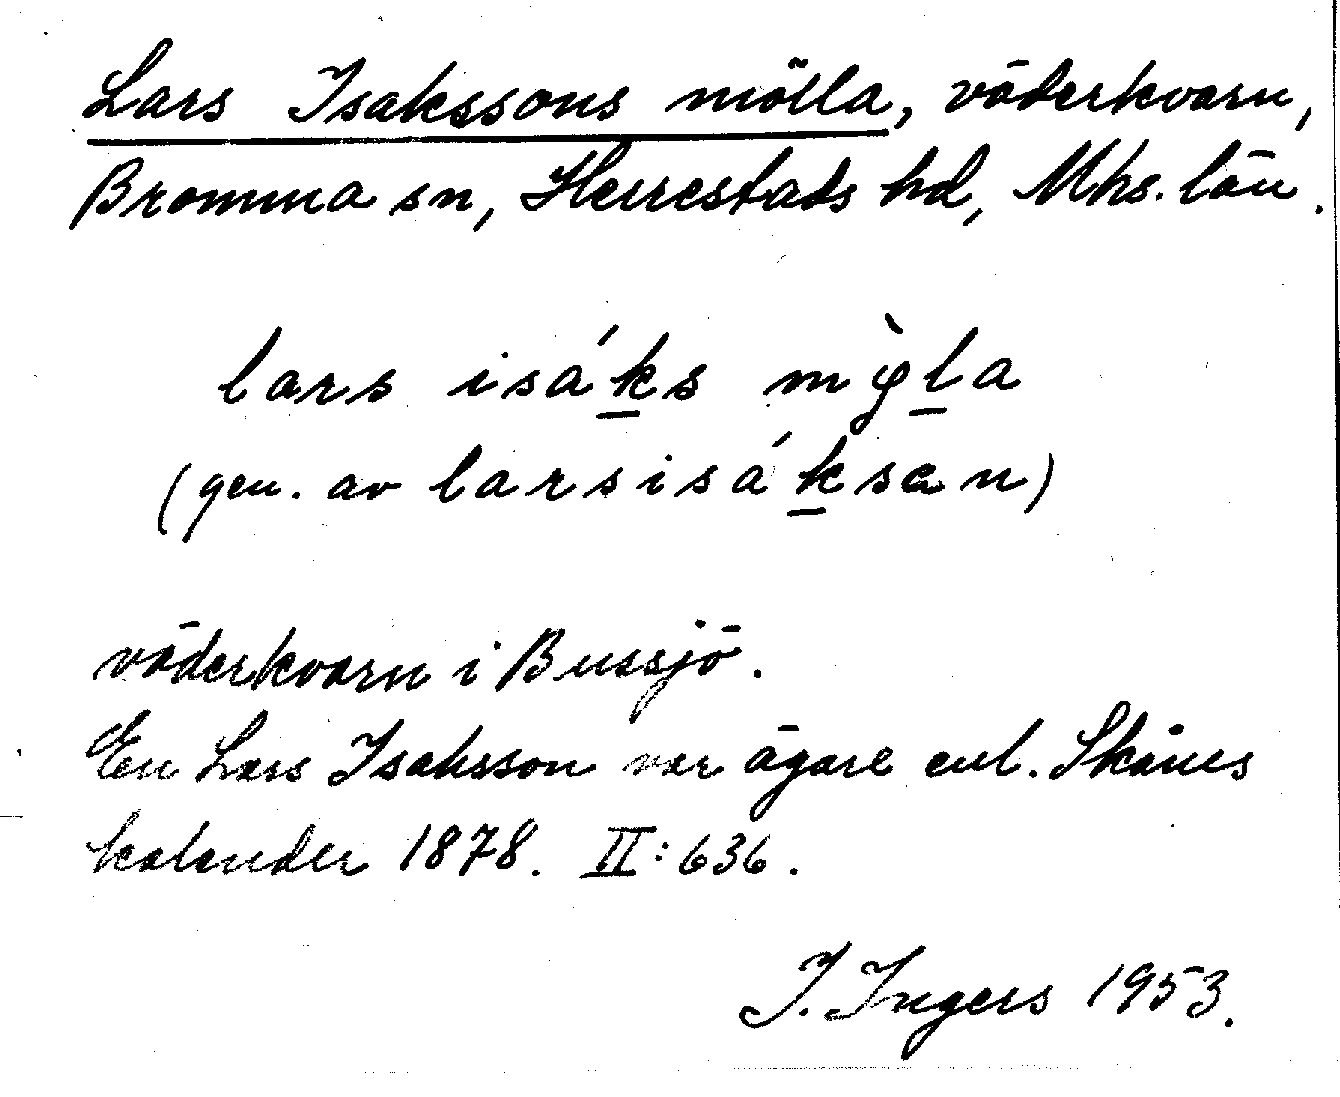 Lars Isakssons mölla, väderkvarn,
Bromma sn, Herrestads hd, Mhs. län.
lars isáks mø̀la
(gen. av larsisáksan)
väderkvarn i Bussjö.
En Lars Isaksson var ägare enl. Skånes
kalender 1878. II: 636.
I. Ingers 1953.